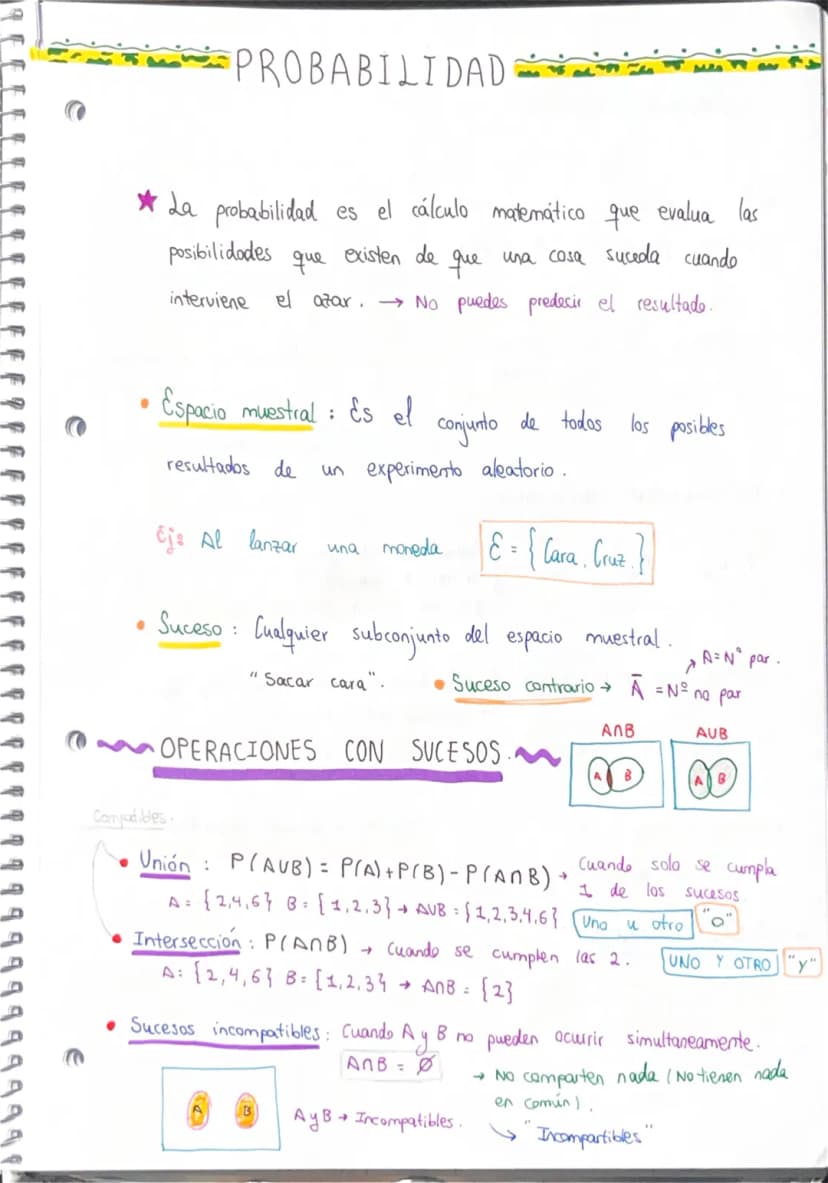 PROBABILIDAD
★ La probabilidad es el cálculo matemático que evalua las
posibilidades que existen de que una cosa suceda cuando
interviene el azar. → No puedes predecir el resultado.
• Espacio muestral : Es el conjunto de todos los posibles
resultados de un experimento aleatorio.
Ej: Al lanzar una moneda E = { Cara, Cruz.}
• Suceso : Cualquier subconjunto del espacio muestral.
"Sacar cara".
A = Nº par.
• Suceso contrario → Ā = Nº no par
OPERACIONES CON SUCESOS.
A∩B
A B
AUB
A B
Compatibles.
• Unión : P(AUB) = P(A)+P(B)-P(A∩B) → Cuando solo se cumpla
1 de los sucesos
A = {2,4,6} B = {1,2,3} → AUB = {1,2,3,4,6} Uno u otro "o"
• Intersección : P(A∩B) → Cuando se cumplen las 2. UNO Y OTRO "y"
A = {2,4,6} B = {1,2,3} → A∩B = {2}
• Sucesos incompatibles : Cuando A y B no pueden ocurrir simultaneamente.
A∩B = Ø
→ No comparten nada (No tienen nada
en común).
A B
A y B → Incompatibles.
↳ "Incompartibles"